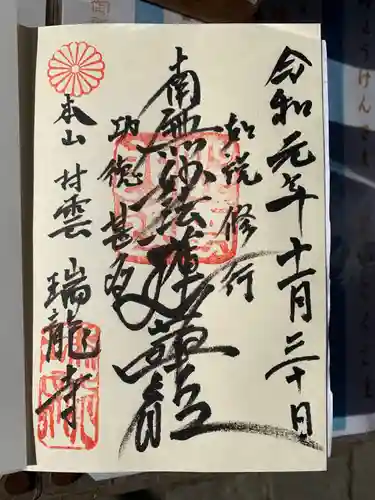 令和元年十一月三十日
如説修行
南無妙法蓮華経
功徳甚多
本山 村雲 瑞龍寺